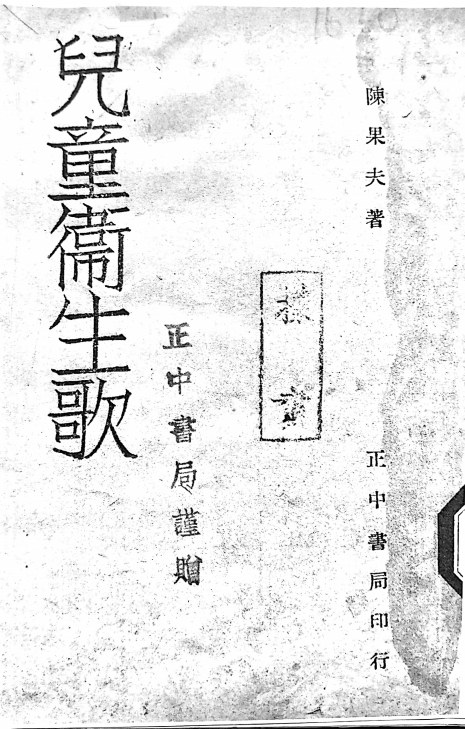 陳果夫著
正中書局印行
正中書局謹贈
兒童衞生歌